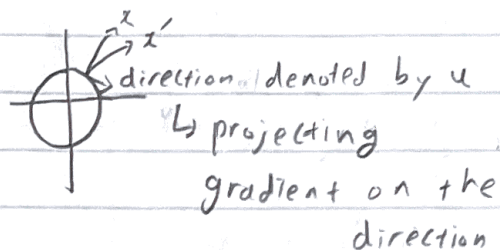 x
x'
direction denoted by u
↳ projecting
gradient on the
direction